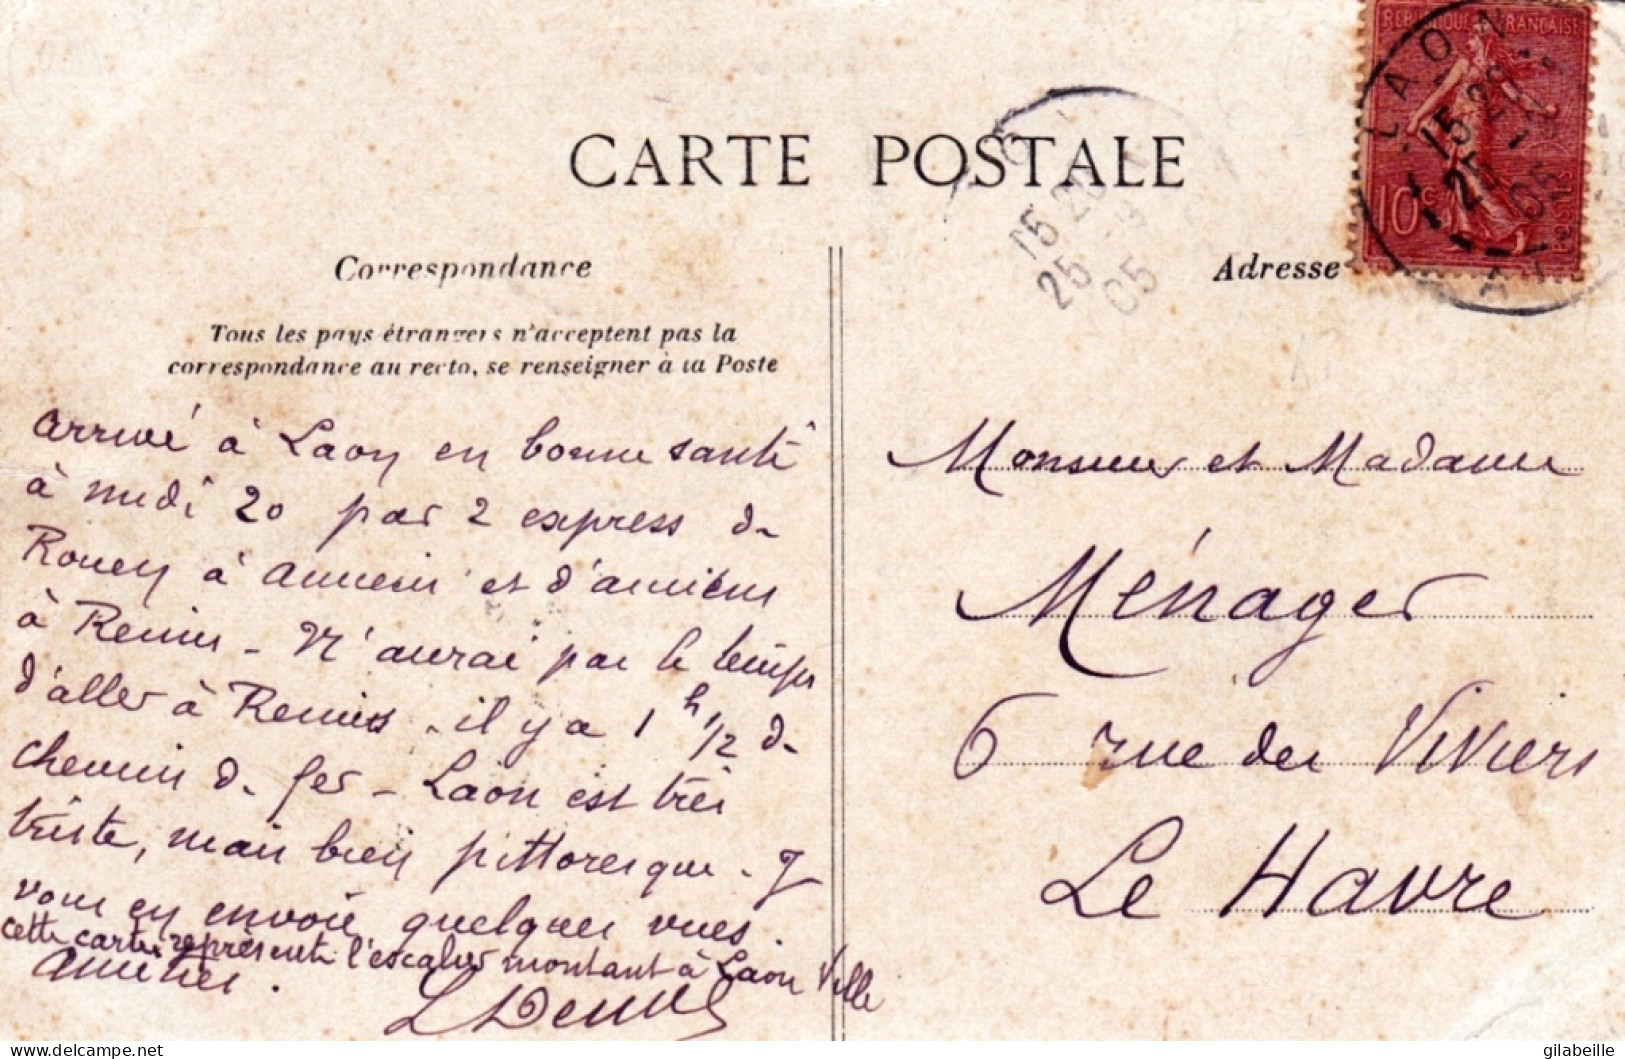 CARTE POSTALE
Correspondance
Tous les pays étrangers n'acceptent pas la
correspondance au recto, se renseigner à la Poste
arrivé à Laon en bonne santé
à midi 20 par 2 express de
Rouen à amiens et d'amiens
à Reims - N'aurai pas le temps
d'aller à Reims - il y a 1 h 1/2 de
chemin de fer - Laon est très
triste, mais bien pittoresque. J
vous en envoie quelques vues.
cette carte représente l'escalier montant à Laon Ville
amitiés.
Adresse
Monsieur et Madame
Ménager
6 rue des Viviers
Le Havre
REPUBLIQUE FRANÇAISE
10 c
POSTES
LAON
15 20
25 -3
05
15 20
25 3
05
www.delcampe.net
gilabeille